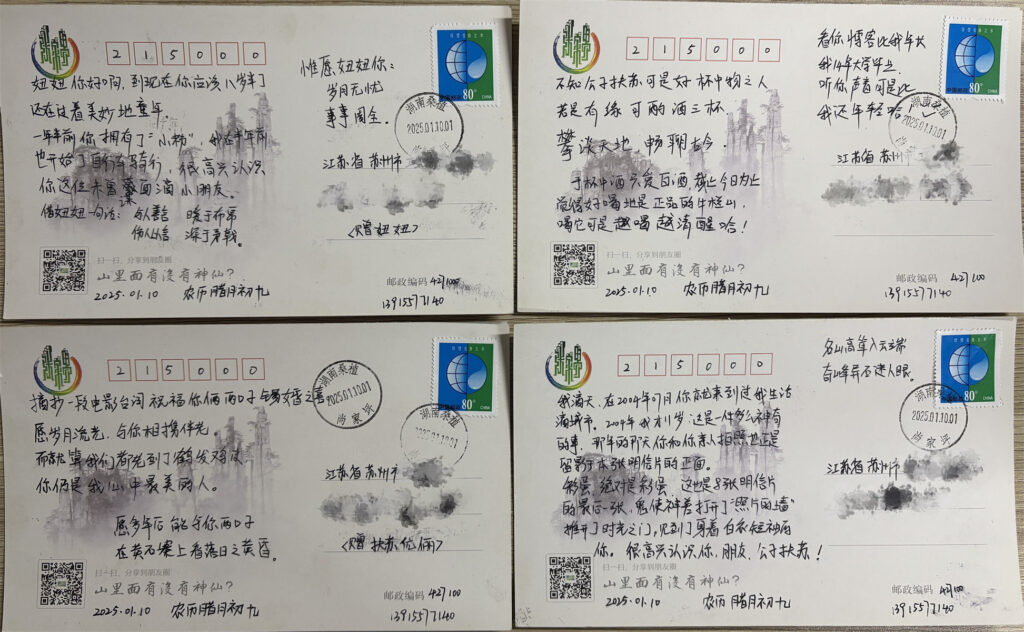 215000
妞妞你好啊,到现在你应该八岁了
还在过着美妙地童年。
一年半前你拥有了"小粉",我是半年前
也开始了自行车骑行,很高兴认识
你这位未曾蒙面滴小朋友。
借妞妞一句话:
与人善言 暖于布帛
伤人以言 深于矛戟。
扫一扫,分享到朋友圈
山里面有没有神仙?
2025.01.10 农历腊月初九
惟愿妞妞你:
岁月无忧
事事周全。
80分
中国邮政
CHINA
湖南桑植
2025.01.10.01
尚家坪
江苏省苏州市
<赠妞妞>
邮政编码 427100
13915577140
215000
不知公子扶苏可是好杯中物之人
若是有缘可酌酒三杯
攀谈天地,畅聊古今。
于杯中酒只爱白酒 截止今日为止
觉得好喝地是正品的牛栏山,
喝它可是越喝越清醒哈!
扫一扫,分享到朋友圈
山里面有没有神仙?
2025.01.10 农历腊月初九
看你博客比我年长
我14年大学毕业
听你声音可是比
我还年轻哈
80分
中国邮政
CHINA
湖南桑植
2025.01.10.01
尚家坪
江苏省苏州
邮政编码 427100
13915577140
215000
摘抄一段电影台词 祝福你俩两口子
愿岁月流光,与你相携伴老。
我们都老到了鹤发鸡皮
你仍是我心中最美丽人。
愿多年后能与你两口子
在黄石寨上看落日之黄昏。
扫一扫,分享到朋友圈
山里面有没有神仙?
2025.01.10 农历腊月初九
湖南桑植
2025.01.10.01
尚家坪
80分
中国邮政
CHINA
湖南桑植
2025.01.10.01
江苏省苏州市
<赠扶苏伉俪>
邮政编码 427100
13915577140
215000
我滴天,在2004年7月你就来到过我生活
滴城市。2004年我才11岁,这是一件多么神奇
的事,那年的那天你和你家人拍照地正是
留影于本张明信片的正面。
彩蛋,绝对是彩蛋,这也是8张明信片
的最后一张,鬼使神差打开了"照片的墙"
推开了时光之门,见到了穿着白衣短袖的
你。很高兴认识你,朋友,公子扶苏!
扫一扫,分享到朋友圈
山里面有没有神仙?
2025.01.10 农历腊月初九
名山高耸入云端
奇峰异石迷人眼。
80分
中国邮政
CHINA
湖南桑植
2025.01.10.01
尚家坪
江苏省苏州市
邮政编码 427100
13915577140